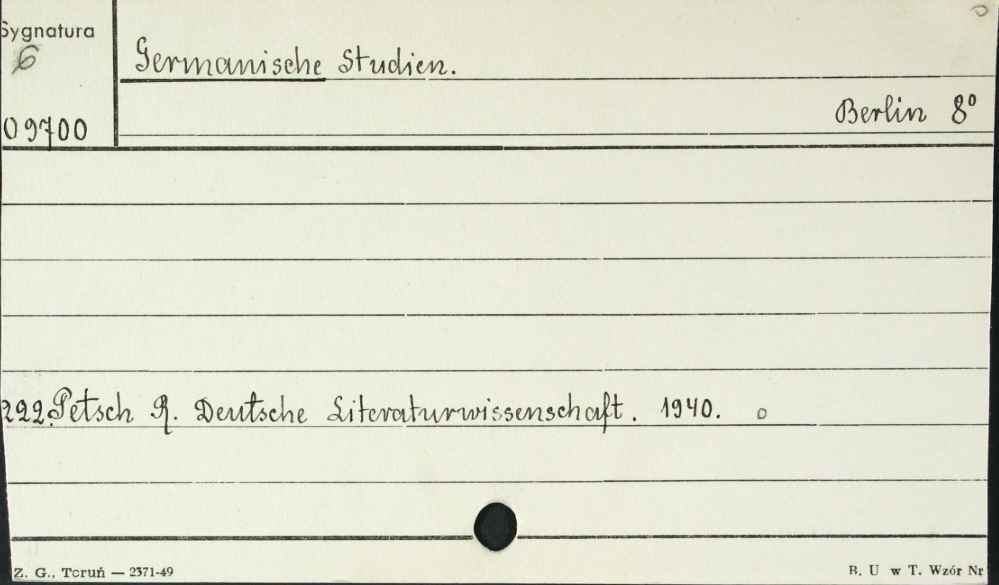 Sygnatura
6
Germanische Studien.
09700
Berlin 8°
222. Petsch R. Deutsche Literaturwissenschaft. 1940. o
Z. G., Toruń — 2371-49
B. U w T. Wzór Nr